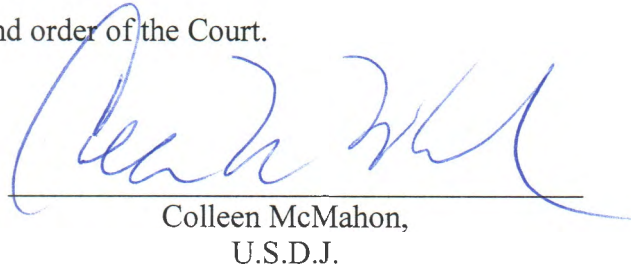 nd order of the Court.
Colleen McMahon,
U.S.D.J.